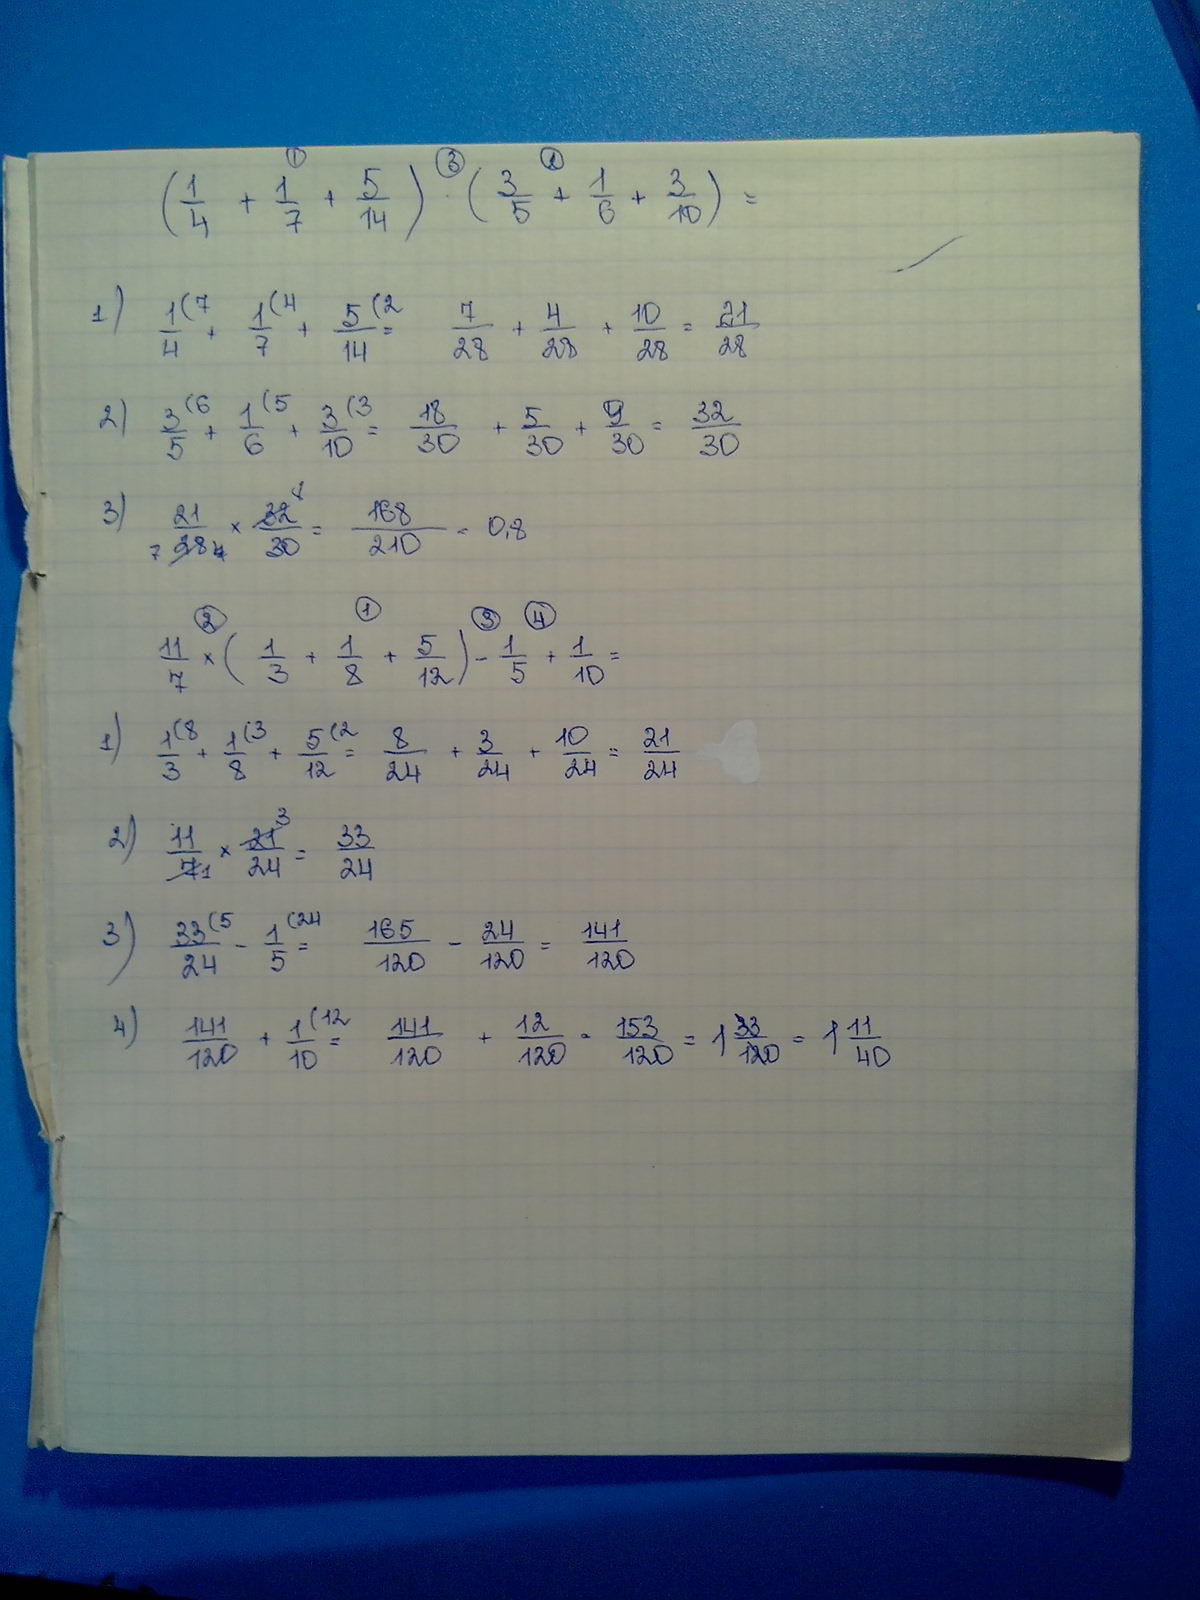 (1/4 + 1/7 + 5/14) · (3/5 + 1/6 + 3/10) =
1) 1/4 (7 + 1/7 (4 + 5/14 (2 = 7/28 + 4/28 + 10/28 = 21/28
2) 3/5 (6 + 1/6 (5 + 3/10 (3 = 18/30 + 5/30 + 9/30 = 32/30
3) 21/28 7 × 32/30 8 = 168/210 = 0,8
11/7 × (1/3 + 1/8 + 5/12) - 1/5 + 1/10 =
1) 1/3 (8 + 1/8 (3 + 5/12 (2 = 8/24 + 3/24 + 10/24 = 21/24
2) 11/7 1 × 21/24 3 = 33/24
3) 33/24 (5 - 1/5 (24 = 165/120 - 24/120 = 141/120
4) 141/120 + 1/10 (12 = 141/120 + 12/120 = 153/120 = 1 33/120 = 1 11/40